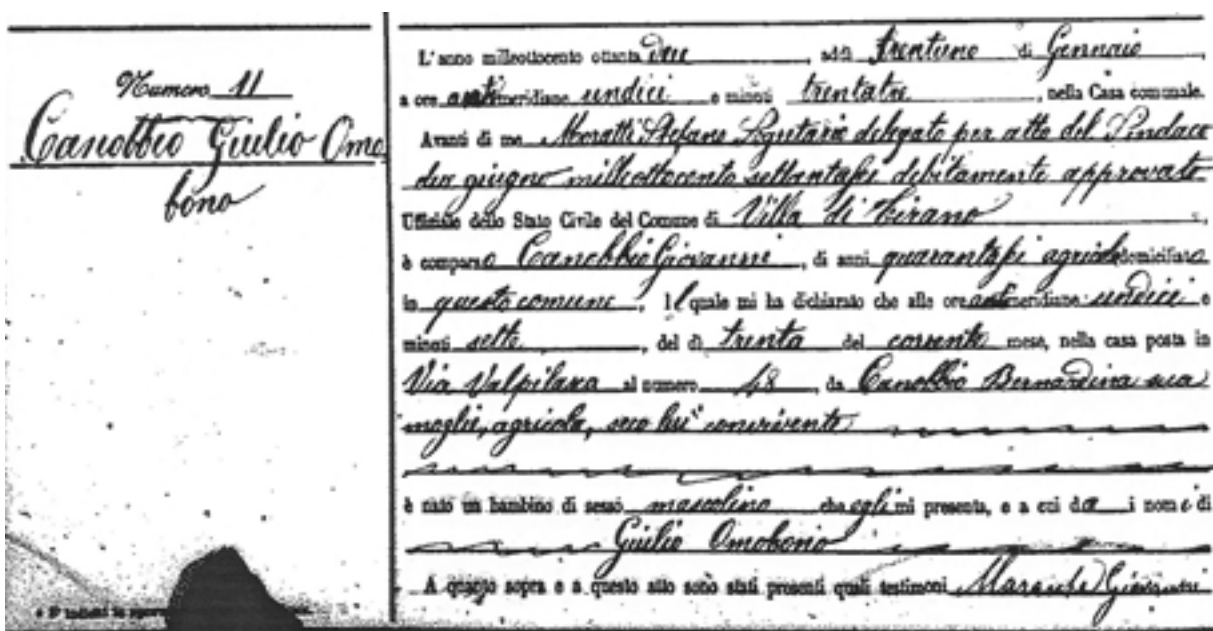 Numero 11
Canobbio Giulio Omo
bono
L'anno milleottocento ottanta due, addì trentuno di Gennaio,
a ore antimeridiane undici e minuti trentatre, nella Casa comunale.
Avanti di me Moratti Stefano Segretario delegato per atto del Sindaco
due giugno milleottocento settantasei debitamente approvato
Uffiziale dello Stato Civile del Comune di Villa di Tirano,
è comparso Canobbio Giovanni, di anni quarantasei agricola domiciliato
in questo comune, Il quale mi ha dichiarato che alle ore antimeridiane undici e
minuti sette, del dì trenta del corrente mese, nella casa posta in
Via Valpilasca al numero 48, da Canobbio Bernardina sua
moglie, agricola, seco lui convivente
è nato un bambino di sesso mascolino che egli mi presenta, e a cui da i nomi di
Giulio Omobono
A quanto sopra e a questo atto sono stati presenti quali testimoni